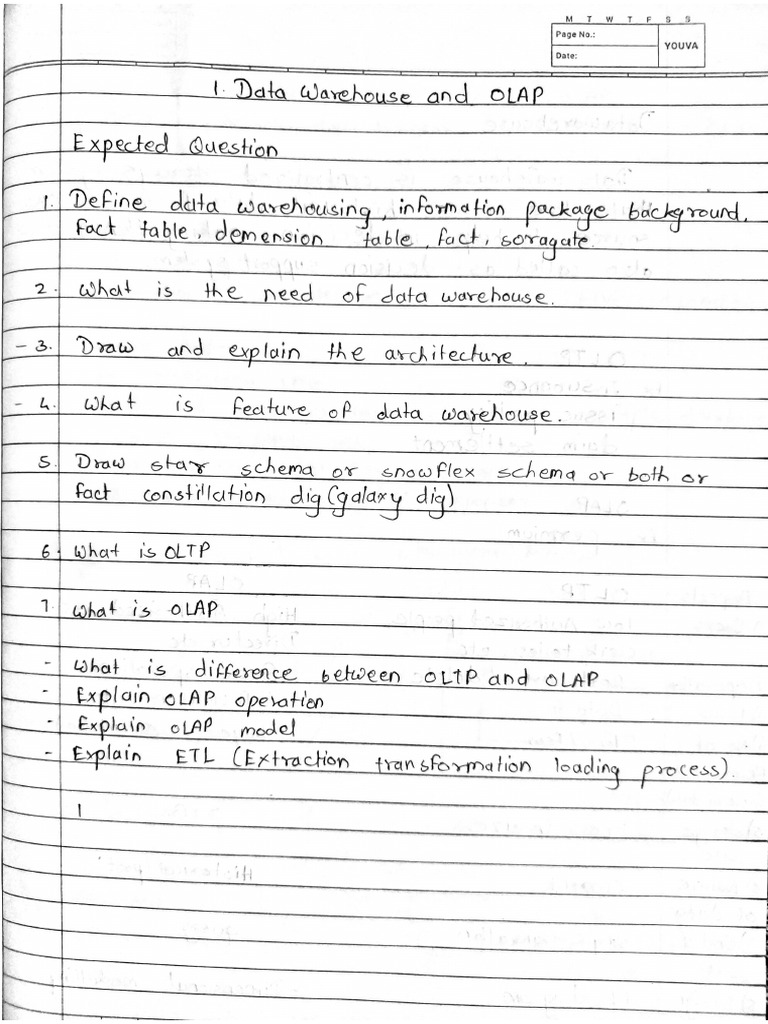 M T W T F S S
Page No.:
YOUVA
Date:
1. Data Warehouse and OLAP
Expected Question
1. Define data warehousing, information package background,
fact table, demension table, fact, soragate.
2. What is the need of data warehouse.
- 3. Draw and explain the architecture.
- 4. What is feature of data warehouse.
5. Draw star schema or snowflex schema or both or
fact constillation dig (galaxy dig)
6. What is OLTP
7. What is OLAP
- What is difference between OLTP and OLAP
- Explain OLAP operation
- Explain OLAP model
- Explain ETL (Extraction transformation loading process).
1